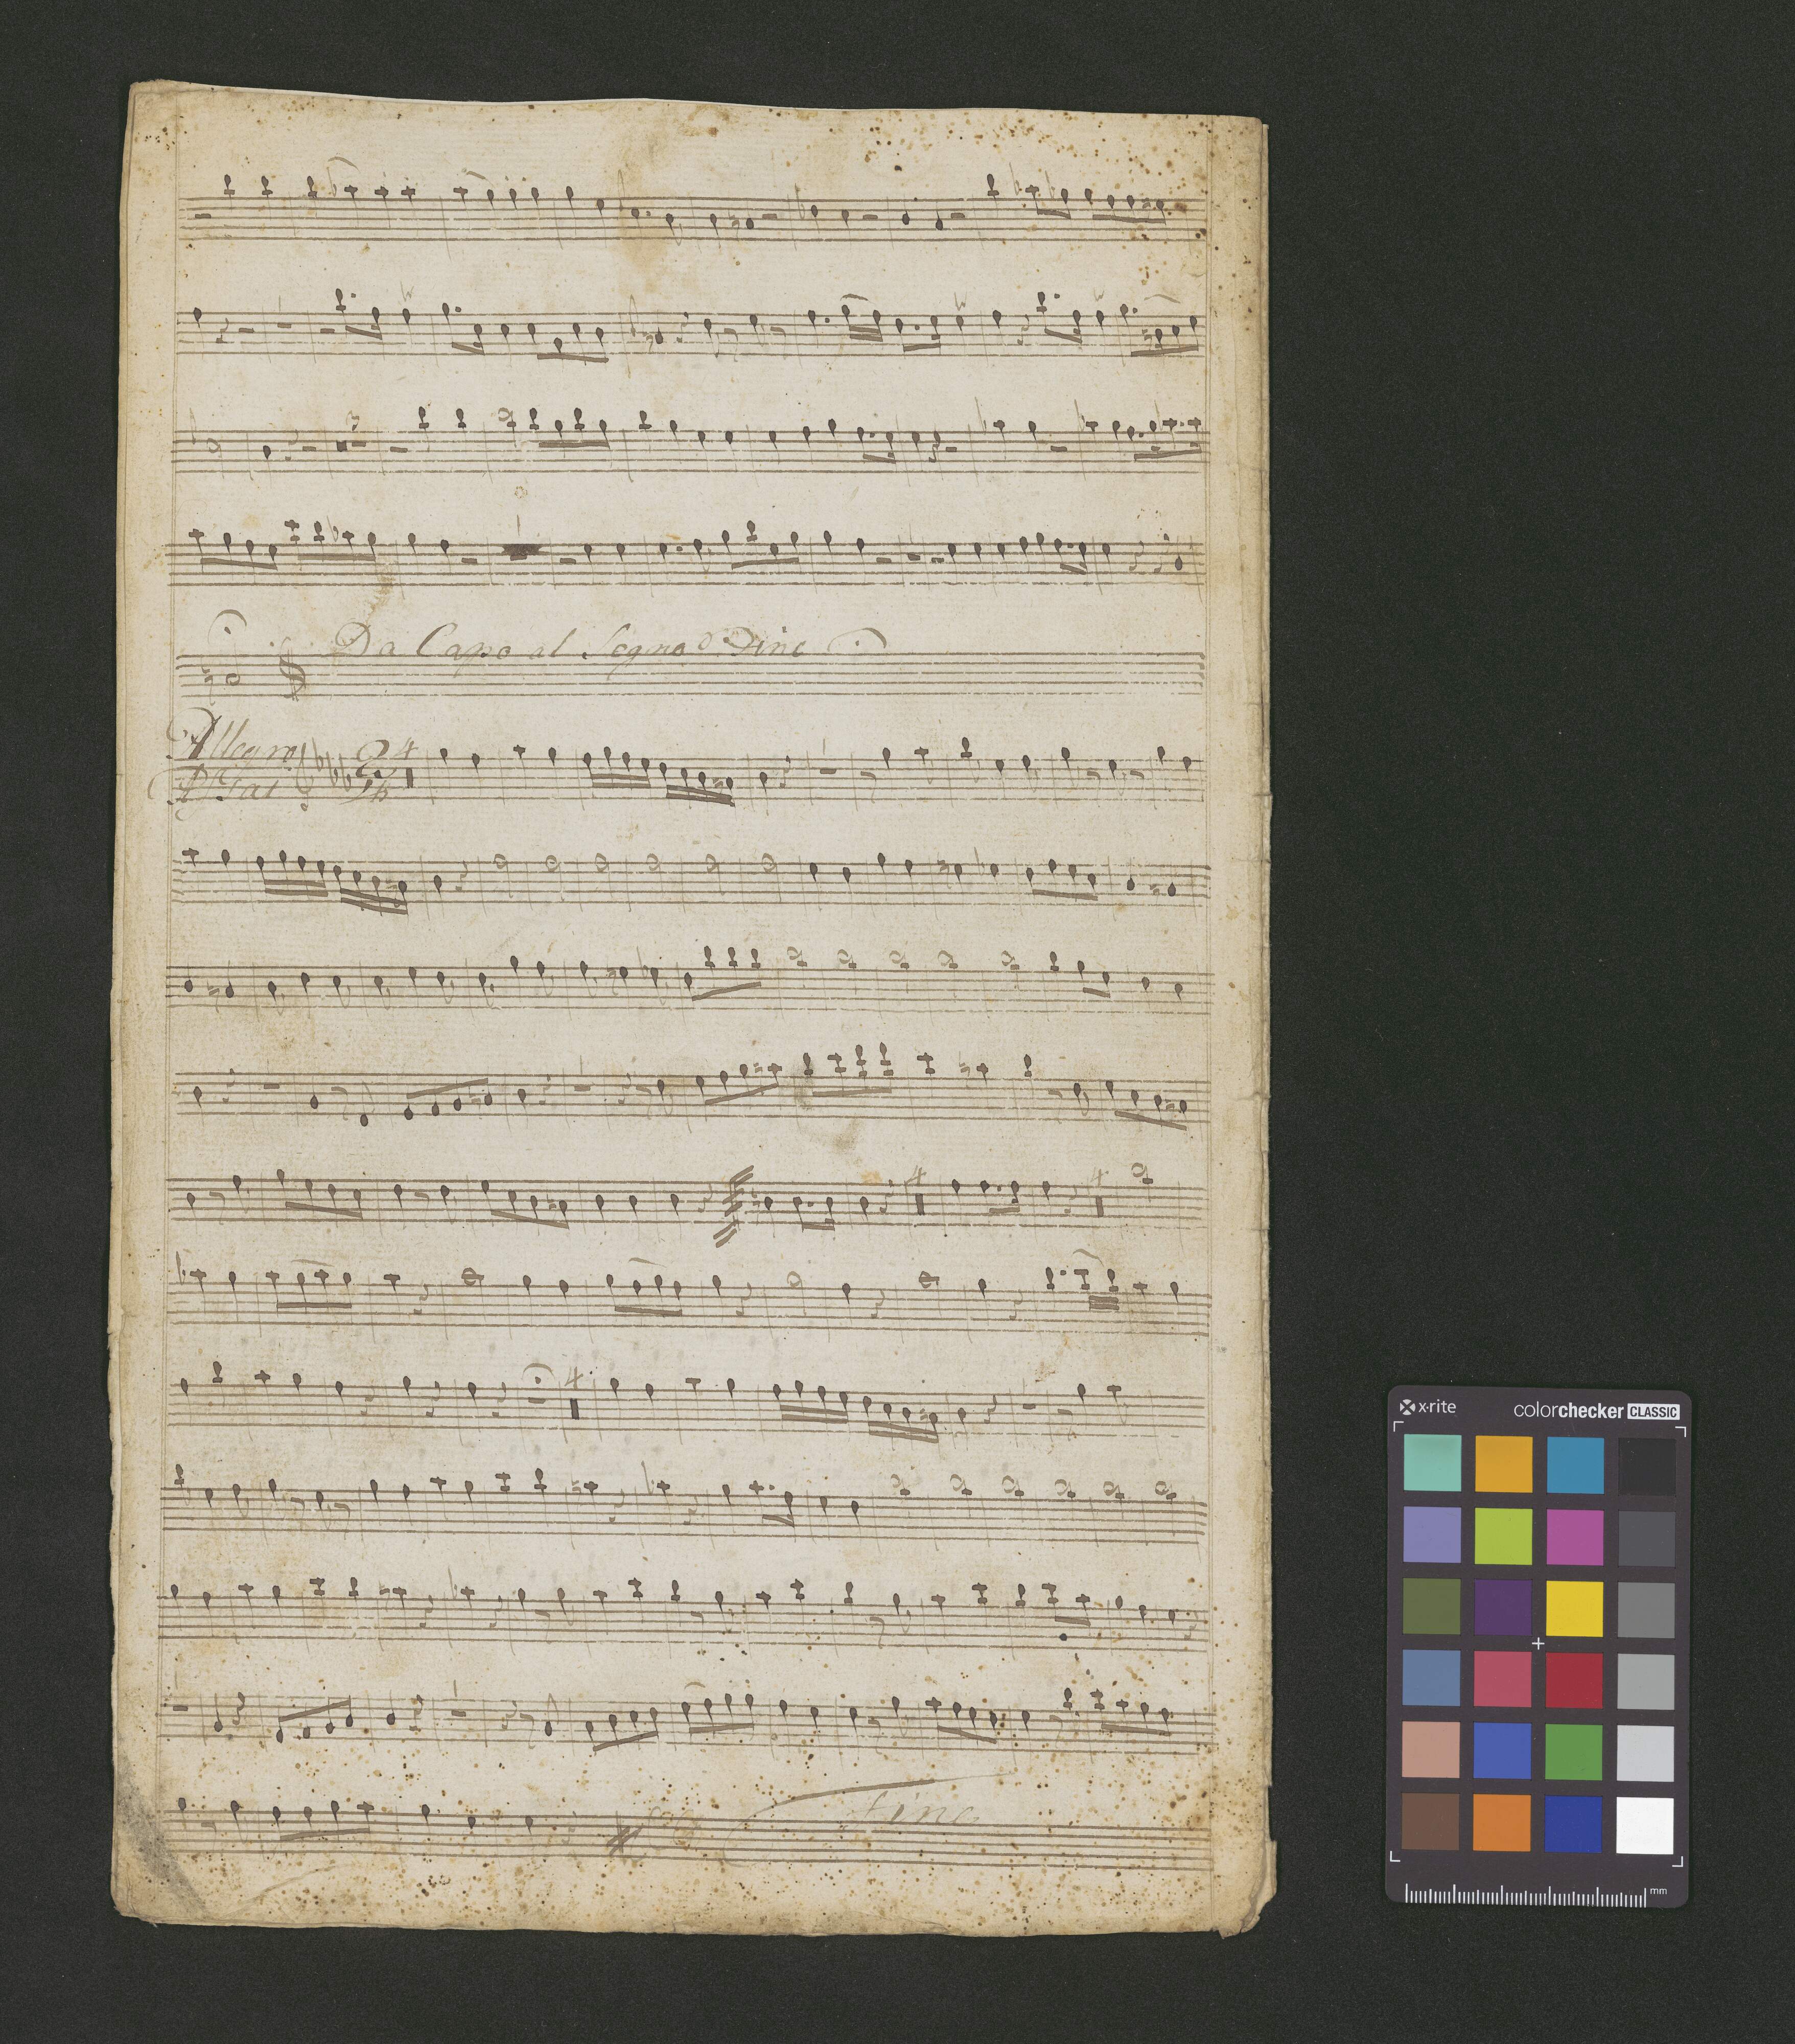 Da Capo al Segno Fine
Allegro
Assai
2 4
4
4
4
Fine
x-rite
colorchecker CLASSIC
mm